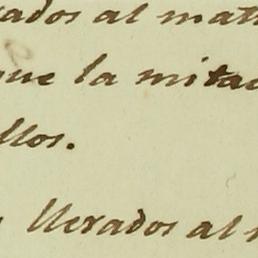 ados al mat
que la mitad
llos.
llevados al